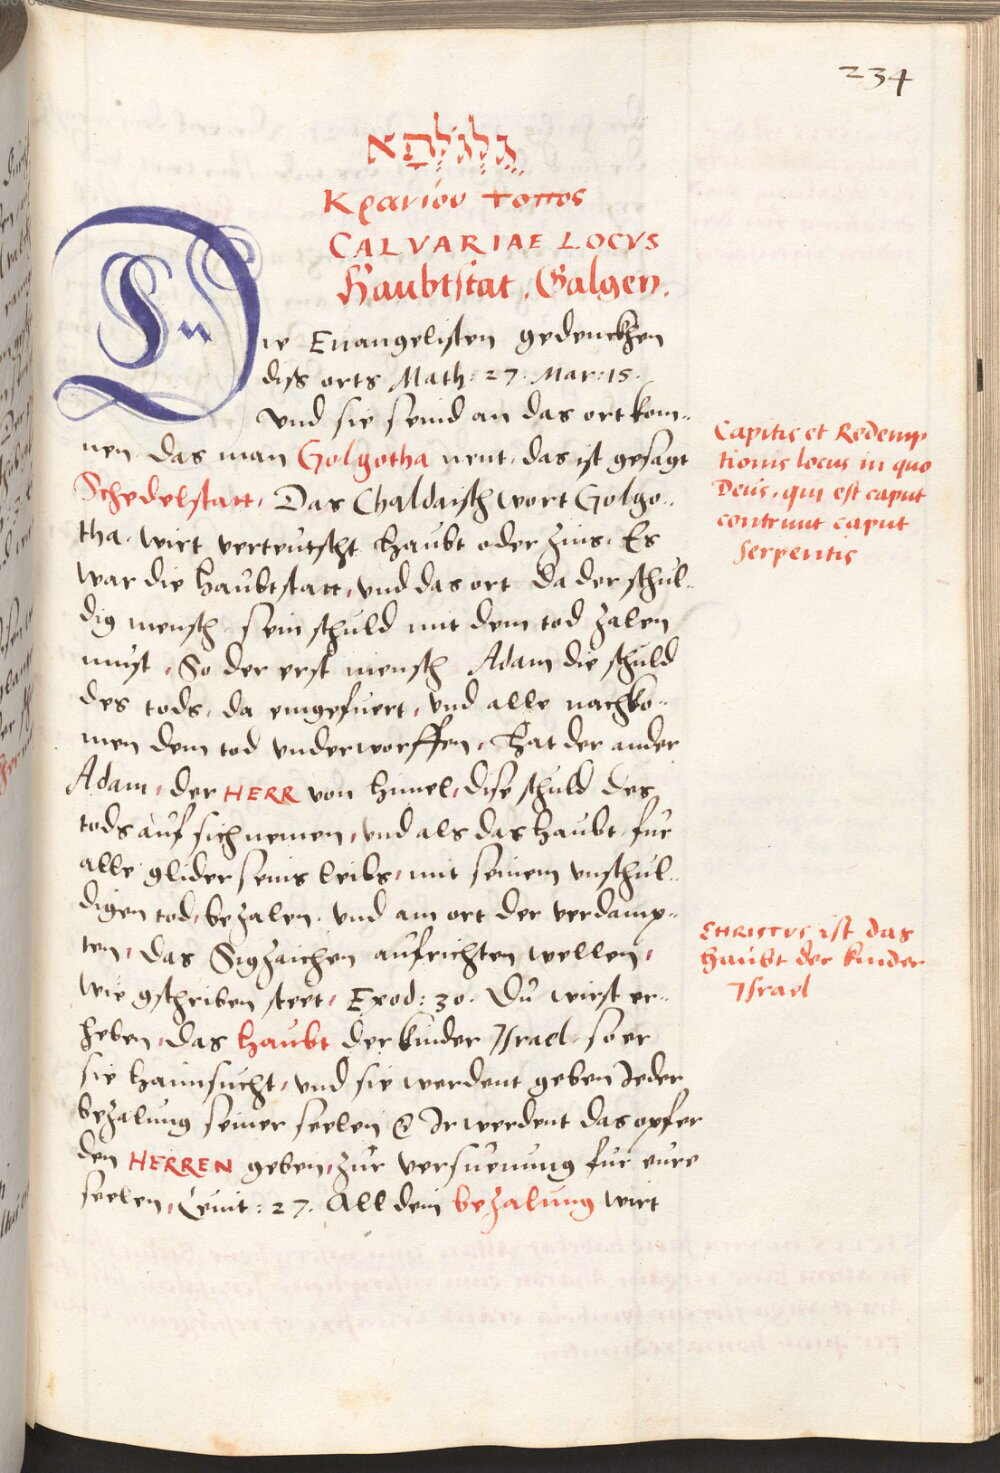 234
גֻלְגֹלְתָא
Κρανίου τοπος
CALVARIAE LOCVS
Haubtstat . Galgen.
Die Euangelisten gedenckhen
diss orts Math: 27. Mar: 15.
Vnd sie seind an das ort kom..
men das man Golgotha nent, das ist gesagt
Schedelstatt, Das Chaldaisch wort Golgo..
tha. wirt verteutscht haubt oder Zins. Es
war die haubtstatt, vnd das ort da der schul..
dig mensch sein schuld mit dem tod zalen
must. So der erst mensch Adam die schuld
des tods, da eingefuert, vnd alle nachko..
men dem tod vnderworffen, Hat der ander
Adam, der HERR von himel, dise schuld des
tods auf sich nemen, vnd als das haubt fur
alle glider seins leibs, mit seinem vnschul..
digen tod, bezalen. vnd am ort der verdamp..
ten, das Sigzaichen aufrichten wellen,
wie gschriben steet, Exod: 30. Du wirst er..
heben, das haubt der kinder Israel so er
sie haimsucht, vnd sie werdent geben Jeder
bezalung seiner seelen & Ir werdent das opfer
den HERREN geben, zur versuenung fur eure
seelen, Leuit: 27. All dein bezalung wirt
Capitis et Redemp
tionis locus in quo
Deus, qui est caput
contriuit caput
serpentis
CHRISTVS ist das
haubt der kinder
Israel